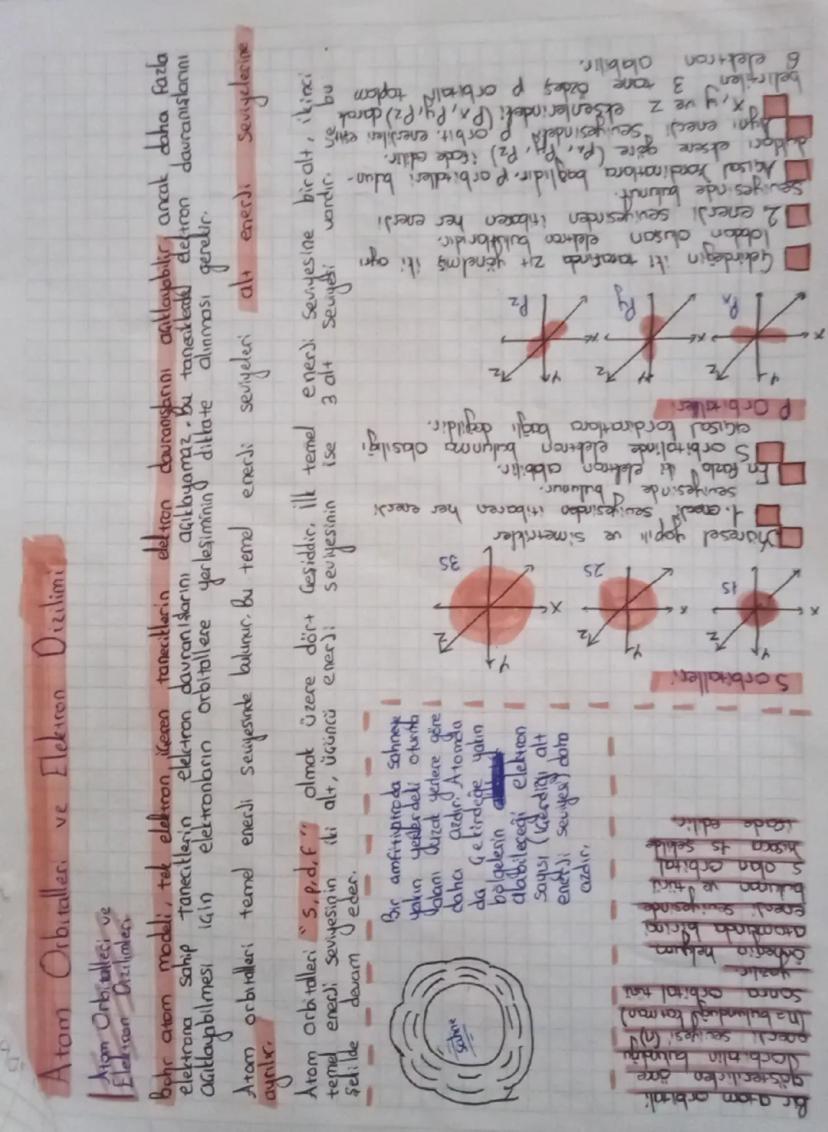 Atom Orbitalleri ve Elektron Dizilimi
Atom Orbitalleri ve
Elektron Dizilimleri
Bohr atom modeli, tek elektron içeren taneciklerin elektron davranışlarını açıklayabilir, ancak daha fazla
elektrona sahip taneciklerin elektron davranışlarını açıklayamaz. Bu taneciklerdeki elektron davranışlarını
açıklayabilmesi için elektronların orbitallere yerleşiminin dikkate alınması gerekir.
Atom orbitalleri temel enerji seviyesinde bulunur. Bu temel enerji seviyeleri alt enerji seviyelerine
ayrılır.
Atom orbitalleri "s, p, d, f" olmak üzere dört çeşiddir. İlk temel enerji seviyesine bir alt, ikinci
temel enerji seviyesinin iki alt, üçüncü enerji seviyesinin ise 3 alt seviyesi vardır. ve bu
şekilde devam eder.
sahne
Bir amfitiyatroda sahneye
yakın yerlerdeki oturma
alanı uzak yerlere göre
daha azdır. Atomda
da çekirdeğe yakın
bölgelerin
alabileceği elektron
sayısı (içerdiği alt
enerji seviyesi) daha
azdır.
Bir atom orbitali
gösterilirken önce
orbitalin bulunduğu
enerji seviyesi (n)
sonra orbital türü
yazılır.
Örneğin helyum
atomunda birinci
enerji seviyesinde
bulunan ve türü
s olan orbital
kısaca 1s şeklinde
ifade edilir.
S orbitalleri
Y Z X 1S
Y Z X 2S
Y Z X 3S
Küresel yapılı ve simetrikler
1. enerji seviyesinden itibaren her enerji
seviyesinde bulunur.
En fazla iki elektron alabilir.
S orbitalinde elektron bulunma olasılığı
açısal kordinatlara bağlı değildir.
P Orbitalleri
Y Z X Px
Y Z X Py
Y Z X Pz
Çekirdeğin iki tarafında zıt yönelmiş iki ayrı
lobdan oluşan elektron bulutlarıdır.
2. enerji seviyesinden itibaren her enerji
seviyesinde bulunur.
Açısal koordinatlara bağlıdır. p orbitalleri bulun-
dukları eksene göre (Px, Py, Pz) ifade edilir.
Aynı enerji seviyesindeki p orbit. enerjileri eşittir.
x, y ve z eksenlerindeki (Px, Py, Pz) olarak
belirtilen 3 tane özdeş p orbitali toplam
6 elektron alabilir.